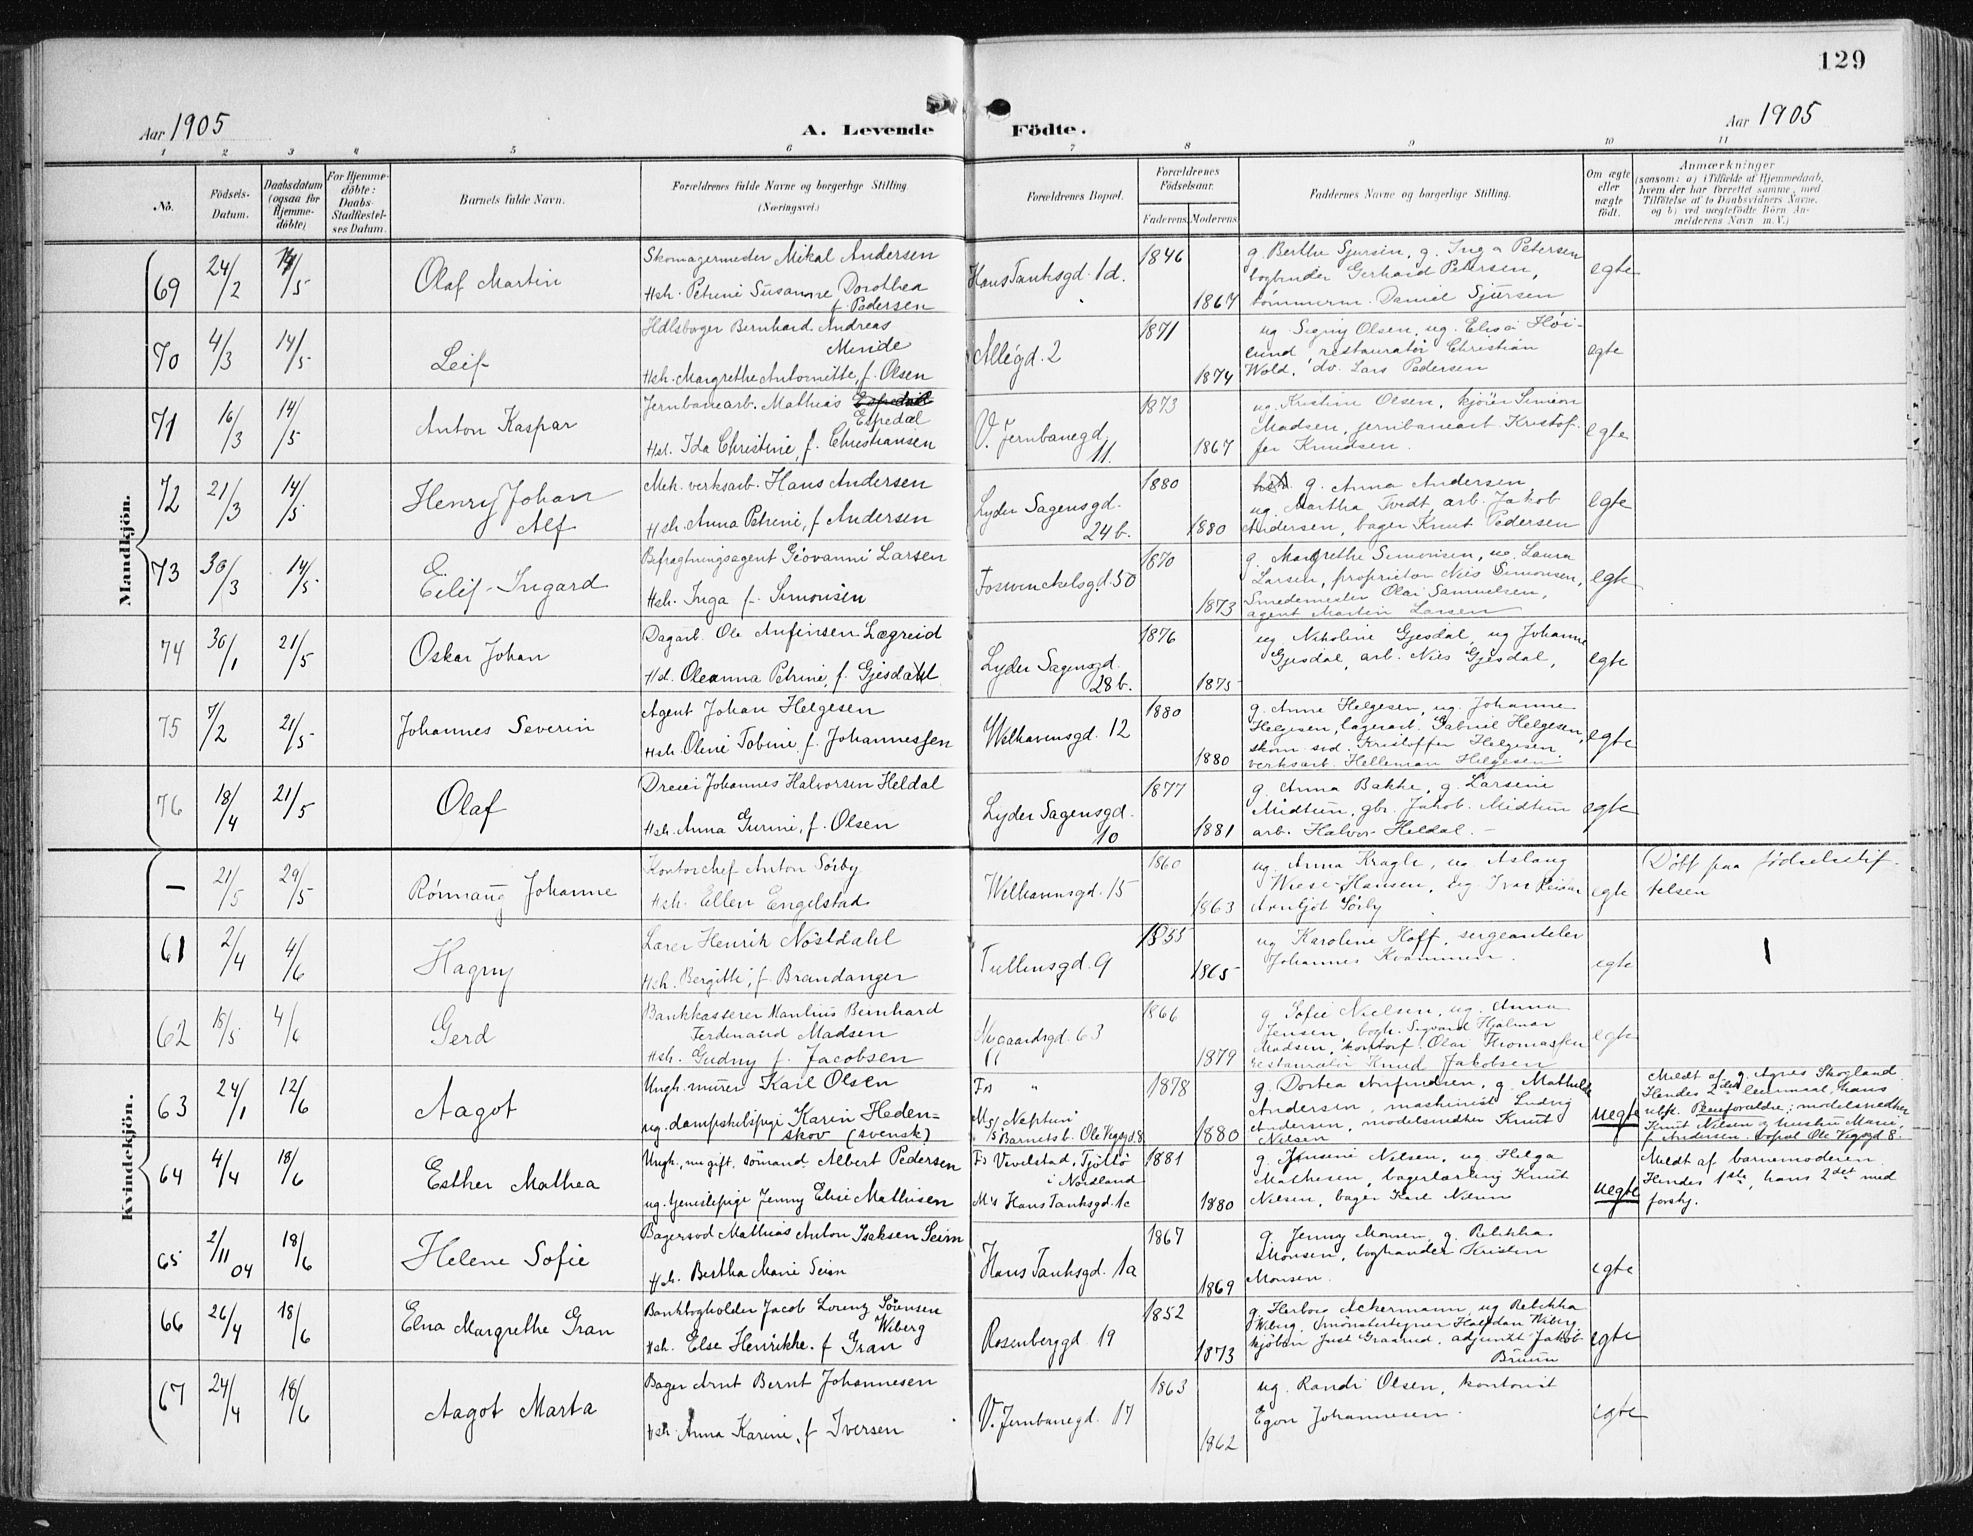 129
Aar 1905
A. Levende
Födte.
Aar 1905
1 2 3 4 5 6 7 8 9 10 11
No.
Födsels-
Datum.
Daabsdatum
(ogsaa for
Hjemme-
døbte)
For Hjemme-
døbte:
Daabs-
Stadfæstel-
ses Datum.
Barnets fulde Navn.
Forældrenes fulde Navne og borgerlige Stilling
(Næringsvei.)
Forældrenes Bopæl.
Forældrenes
Födselsaar.
Faderens Moderens
Faddernes Navne og borgerlige Stilling.
Om ægte
eller
uægte
født.
Anmærkninger
(saasom: a) i Tilfælde af Hjemmedaab,
hvem der har forrettet samme, med
Tilföielse af to Daabsvidners Navne,
og b) ved uægtefödte Börn An-
melderens Navn m. V.)
Mandkjön.
69 24/2 14/5 Olaf Martin
Skomagermester Mikal Andersen
Hsh. Petrine Susanne Dorothea
f. Pedersen
Hans Tanksgd. 1d.
1846
1867
g. Berthe Sjursen, g. Inga Petersen
bogbinder Gerhard Petersen,
tømmerm. Daniel Sjursen
egte
70 4/3 14/5 Leif
Hdlsbager Bernhard Andreas
Minde
Hsh. Margrethe Antoinette, f. Olsen
Allégd. 2
1871
1874
ug. Signy Olsen, ug. Elisa Höi-
lund, restauratör Christian
Wold, do. Lars Pedersen
egte
71 16/3 14/5 Anton Kaspar
Jernbanearb. Mathias
Espedal
Hsh. Ida Christine, f. Christiansen
V. Jernbanegd.
11.
1873
1867
ug. Kristine Olsen, kjörer Simeon
Madsen, jernbanearb. Kristof-
fer Knudsen.
egte
72 21/3 14/5 Henry Johan
Alf
Mek. verksarb. Hans Andersen
Hsh. Anna Petrine, f. Andersen
Lyder Sagensgd.
24 b.
1880
1880
g. Anna Andersen,
ug. Martha Tvedt, arb. Jakob
Andersen, bager Knut Pedersen
egte
73 30/3 14/5 Eilif Ingard
Befragtningsagent Giovanni Larsen
Hsh. Inga f. Simonsen
Fosswinckelsgd. 50
1870
1873
g. Margrethe Simonsen, ug. Laura
Larsen, proprietær Nils Simonsen,
Smedemester Olai Samuelsen,
agent Martin Larsen
egte
74 30/1 21/5 Oskar Johan
Dagarb. Ole Anfinsen Lægreid
Hd. Oleanna Petrine, f. Gjesdahl
Lyder Sagensgd.
28 b.
1876
1875
ug. Nikoline Gjesdal, ug Johanne
Gjesdal, arb. Nils Gjesdal,
egte
75 7/2 21/5 Johannes Severin
Agent Johan Helgesen
Hsh. Oline Tobine, f. Johannessen
Welhavensgd. 12
1880
1880
g. Anne Helgesen, ug. Johanne
Helgesen, lagerarb. Gabriel Helgesen,
skom. svd. Kristoffer Helgesen
verksarb. Helleman Helgesen.
egte
76 18/4 21/5 Olaf
Dreier Johannes Halvorsen Heldal
Hsh. Anna Gurine, f. Olsen
Lyder Sagensgd.
10
1877
1881
g. Anna Bakke, g. Larsine
Midtun, gbr. Jakob Midtun
arb. Halvor Heldal.
egte
Kvindekjön.
— 21/5 29/5 Rönnaug Johanne
Kontorchef Anton Sörby
Hsh. Ellen Engelstad
Welhavensgd. 15
1860
1863
ug. Anna Kragh, ug. Aslaug
Wiese-Hansen, Ivar Reidar
Arnljot Sörby
egte
Döbt paa födselsstif-
telsen
61 2/4 4/6 Hagny
Lærer Henrik Nöstdahl
Hsh. Bergitte, f. Brandanger
Tullinsgd. 9
1855
1865
ug Karoline Hoff, sergeantelev
Johannes Kvammen.
egte
62 18/5 4/6 Gerd
Bankkasserer Manlius Bernhard
Ferdinand Madsen
Hsh. Gudny f. Jacobsen
Nygaardsgd. 63
1866
1879
g. Sofie Nielsen, ug. Anna
Jensen, bogh. Sigvard Hjalmar
Madsen, kontorf. Olai Thomassen
restauratör Knud Jakobsen
egte
63 24/1 12/6 Aagot
Ungk. murer Karl Olsen
ug. dampskibspige Karin Heden-
skov (svensk)
Fs "
Ms/ Neptun
Barnets b. Ole Vigsgd 8
1878
1880
g. Dortea Anfindsen, g. Mathilde
Andersen, maskinist Ludvig
Andersen, modelsnedker Knut
Nilsen
uegte
Meldt af g. Agnes Skogland
Hendes 2det leiermaal, hans
ubk. Pleieforældre: modelsnedker
Knut Nilsen og hustru Marie,
f. Andersen, bopæl Ole Vigsgd 8.
64 4/4 18/6 Esther Mathea
Ungk., nu gift, sömand Albert Pedersen
ug. tjenestepige Jenny Elise Mathisen
Fs Vevelstad, Tjöttö
i Nordland
Ms Hans Tanksgd. 1c
1881
1880
g. Jensine Nilsen, ug. Helga
Mathesen, bagerlærling Knut
Nilsen, bager Karl Nilsen
uegte
Meldt af barnemoderen
Hendes 1ste, hans 2det med
forskj.
65 2/11 04 18/6 Helene Sofie
Bagersvd Mathias Anton Isaksen Seim
Hsh. Bertha Marie Seim
Hans Tanksgd. 1a
1867
1869
g. Jenny Monsen, g. Rebekka
Monsen, boghandler Kristen
Monsen.
egte
66 26/4 18/6 Elna Margrethe Gran
Bankbogholder Jacob Lorenz Sörensen
Wiberg
Hsh. Else Henrikke f. Gran
Rosenberggd. 19
1852
1873
g. Herborg Ackermann, ug Rebekka
Wiberg, mönstertegner Halfdan Wiberg
kjöbm. Just Graarud, adjunkt Jakob
Bruun
egte
67 24/4 18/6 Aagot Marta
Bager Arnt Bernt Johannesen
Hsh. Anna Karine, f. Iversen
V. Jernbanegd. 17
1863
1862
ug. Randi Olsen, kontorist
Egon Johannesen.
egte